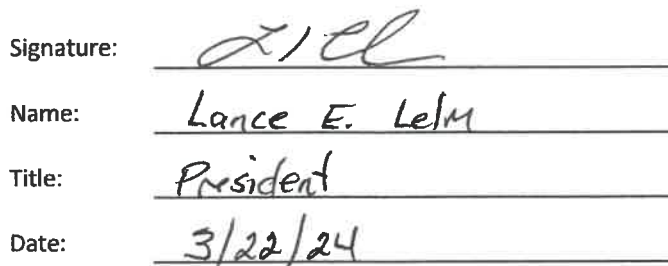 Signature:
Name: Lance E. Lelm
Title: President
Date: 3/22/24